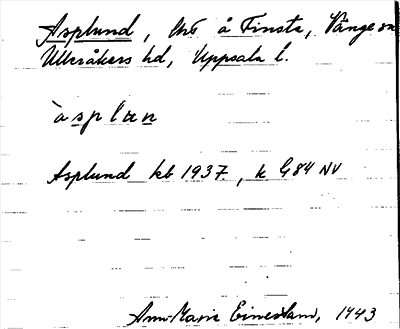 Asplund, lht å Finsta, Vänge sn
Ulleråkers hd, Uppsala l.
àsplun
Asplund kb 1937, k G84 NV
Ann-Marie Einerstam, 1943